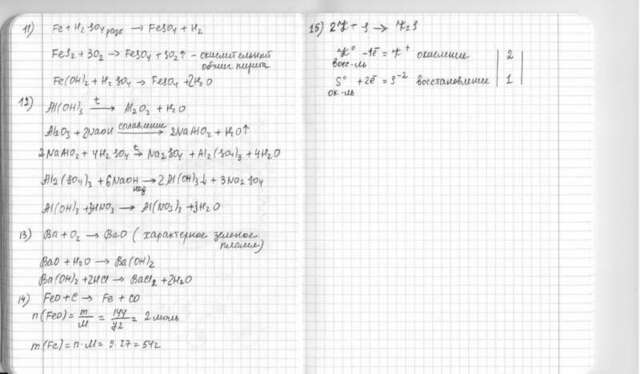 11) Fe + H₂SO₄ разб → FeSO₄ + H₂
FeS₂ + 3O₂ → FeSO₄ + SO₂↑ - окислительный обжиг пирита
Fe(OH)₂ + H₂SO₄ → FeSO₄ + 2H₂O
12) Al(OH)₃ —t→ Al₂O₃ + H₂O
Al₂O₃ + 2NaOH —сплавление→ 2NaAlO₂ + H₂O↑
2NaAlO₂ + 4H₂SO₄ —t→ Na₂SO₄ + Al₂(SO₄)₃ + 4H₂O
Al₂(SO₄)₃ + 6NaOH —нед→ 2Al(OH)₃↓ + 3Na₂SO₄
Al(OH)₃ + 3HNO₃ → Al(NO₃)₃ + 3H₂O
13) Ba + O₂ → BaO (характерное зеленое
пламя)
BaO + H₂O → Ba(OH)₂
Ba(OH)₂ + 2HCl → BaCl₂ + 2H₂O
14) FeO + C → Fe + CO
n(FeO) = m/M = 144/72 = 2 моль
m(Fe) = n·M = 2·27 = 542
15) 2K + S → K₂S
K⁰ - 1ē = K⁺ окисление | 2
восс-ль
S⁰ + 2ē = S⁻² восстановление | 1
ок-ль